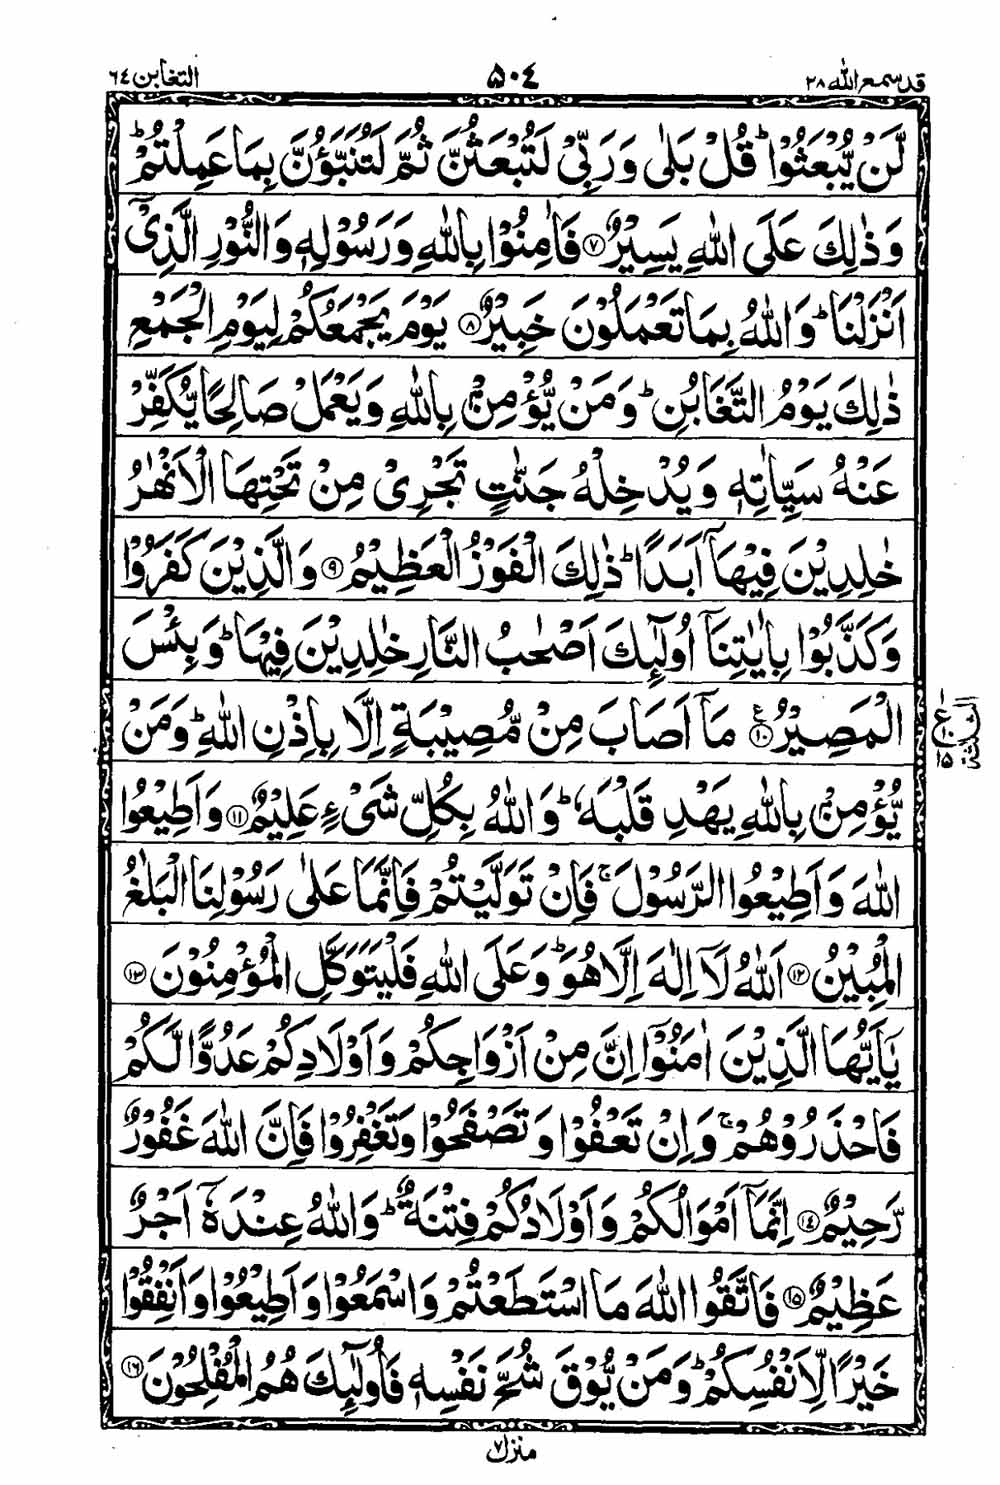 قد سمع الله ٢٨
٥٠٤
التغابن ٦٤
لَّنْ يُّبْعَثُوْا ؕ قُلْ بَلٰى وَ رَبِّىْ لَتُبْعَثُنَّ ثُمَّ لَتُنَبَّؤُنَّ بِمَا عَمِلْتُمْ ؕ
وَ ذٰلِكَ عَلَى اللّٰهِ يَسِيْرٌ ﴿٧﴾ فَاٰمِنُوْا بِاللّٰهِ وَ رَسُوْلِهٖ وَ النُّوْرِ الَّذِىْۤ
اَنْزَلْنَا ؕ وَ اللّٰهُ بِمَا تَعْمَلُوْنَ خَبِيْرٌ ﴿٨﴾ يَوْمَ يَجْمَعُكُمْ لِيَوْمِ الْجَمْعِ
ذٰلِكَ يَوْمُ التَّغَابُنِ ؕ وَ مَنْ يُّؤْمِنْۢ بِاللّٰهِ وَ يَعْمَلْ صَالِحًا يُّكَفِّرْ
عَنْهُ سَيِّاٰتِهٖ وَ يُدْخِلْهُ جَنّٰتٍ تَجْرِىْ مِنْ تَحْتِهَا الْاَنْهٰرُ
خٰلِدِيْنَ فِيْهَاۤ اَبَدًا ؕ ذٰلِكَ الْفَوْزُ الْعَظِيْمُ ﴿٩﴾ وَ الَّذِيْنَ كَفَرُوْا
وَ كَذَّبُوْا بِاٰيٰتِنَاۤ اُولٰٓئِكَ اَصْحٰبُ النَّارِ خٰلِدِيْنَ فِيْهَا ؕ وَ بِئْسَ
الْمَصِيْرُ ﴿١٠﴾ ع مَاۤ اَصَابَ مِنْ مُّصِيْبَةٍ اِلَّا بِاِذْنِ اللّٰهِ ؕ وَ مَنْ
الثلاثة
ع ١٠ ١٥
يُّؤْمِنْۢ بِاللّٰهِ يَهْدِ قَلْبَهٗ ؕ وَ اللّٰهُ بِكُلِّ شَىْءٍ عَلِيْمٌ ﴿١١﴾ وَ اَطِيْعُوا
اللّٰهَ وَ اَطِيْعُوا الرَّسُوْلَ ۚ فَاِنْ تَوَلَّيْتُمْ فَاِنَّمَا عَلٰى رَسُوْلِنَا الْبَلٰغُ
الْمُبِيْنُ ﴿١٢﴾ اَللّٰهُ لَاۤ اِلٰهَ اِلَّا هُوَ ؕ وَ عَلَى اللّٰهِ فَلْيَتَوَكَّلِ الْمُؤْمِنُوْنَ ﴿١٣﴾
يٰۤاَيُّهَا الَّذِيْنَ اٰمَنُوْۤا اِنَّ مِنْ اَزْوَاجِكُمْ وَ اَوْلَادِكُمْ عَدُوًّا لَّكُمْ
فَاحْذَرُوْهُمْ ۚ وَ اِنْ تَعْفُوْا وَ تَصْفَحُوْا وَ تَغْفِرُوْا فَاِنَّ اللّٰهَ غَفُوْرٌ
رَّحِيْمٌ ﴿١٤﴾ اِنَّمَاۤ اَمْوَالُكُمْ وَ اَوْلَادُكُمْ فِتْنَةٌ ؕ وَ اللّٰهُ عِنْدَهٗۤ اَجْرٌ
عَظِيْمٌ ﴿١٥﴾ فَاتَّقُوا اللّٰهَ مَا اسْتَطَعْتُمْ وَ اسْمَعُوْا وَ اَطِيْعُوْا وَ اَنْفِقُوْا
خَيْرًا لِّاَنْفُسِكُمْ ؕ وَ مَنْ يُّوْقَ شُحَّ نَفْسِهٖ فَاُولٰٓئِكَ هُمُ الْمُفْلِحُوْنَ ﴿١٦﴾
منزل ٧